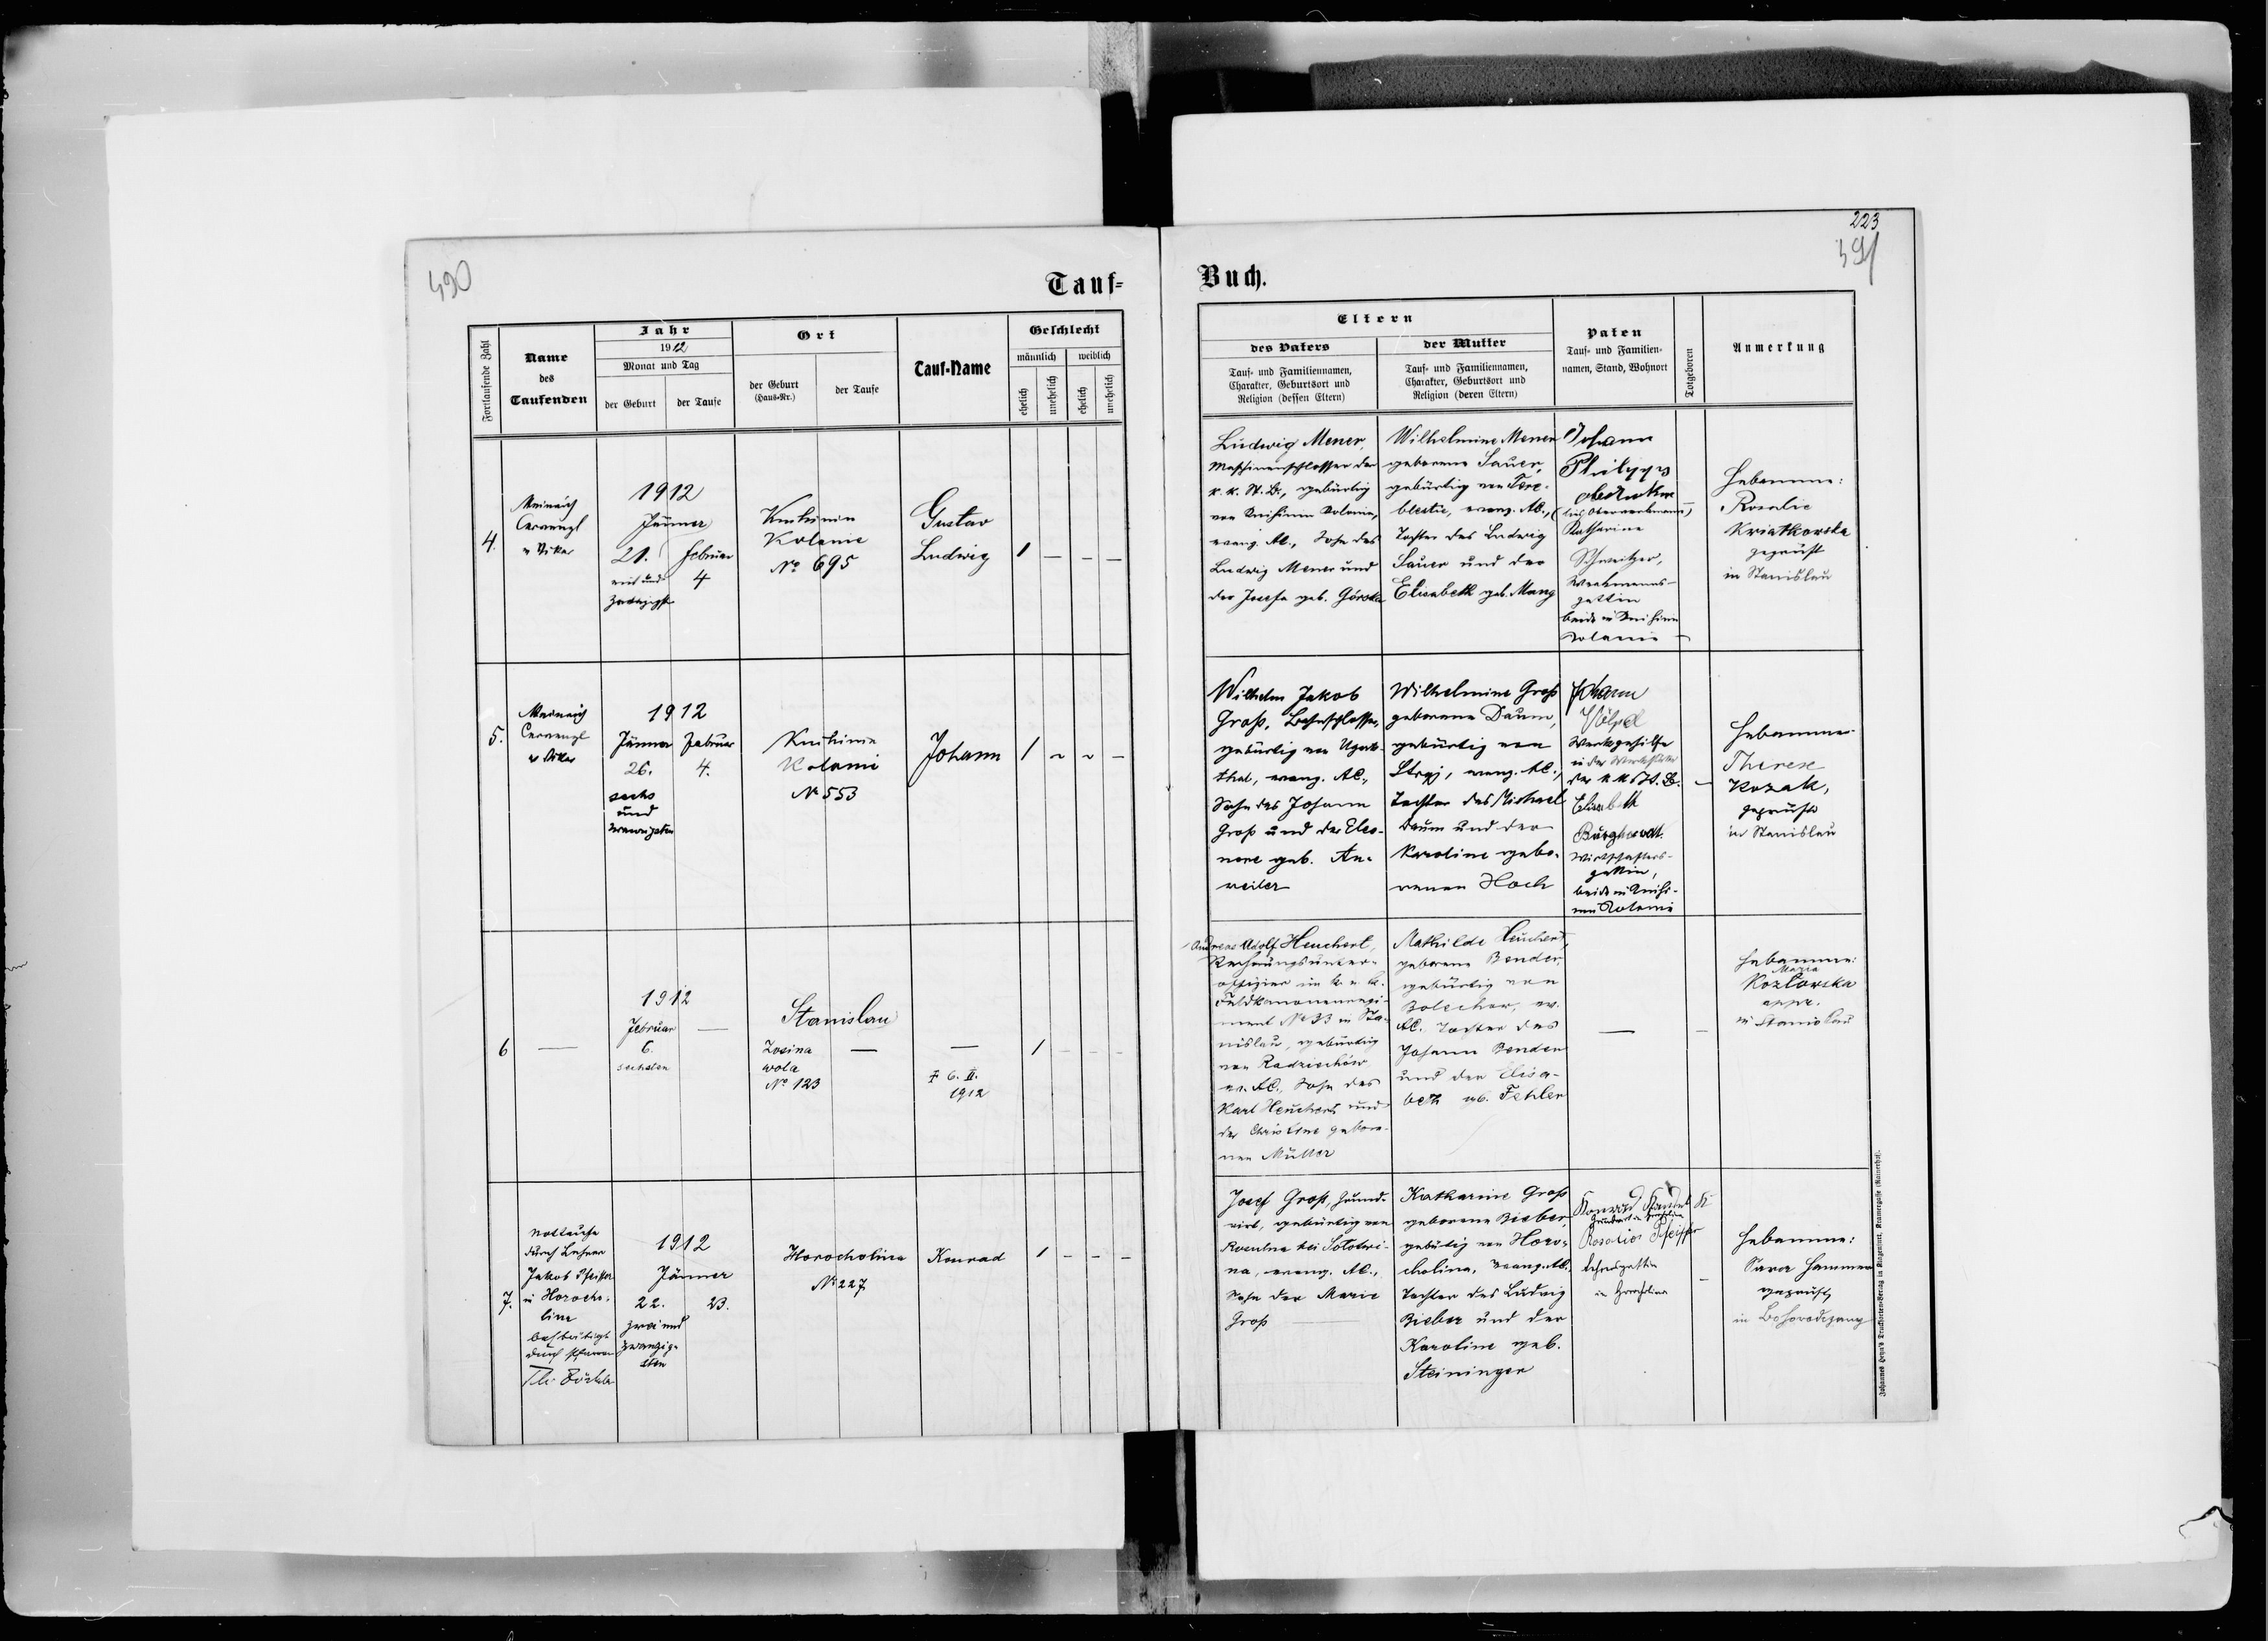 223
490
391
Tauf-
Buch.
Fortlaufende Zahl
Name
des
Taufenden
Jahr
1912
Monat und Tag
der Geburt
der Taufe
Ort
der Geburt
(Haus-Nr.)
der Taufe
Tauf-Name
Geschlecht
männlich
weiblich
ehelich
unehelich
ehelich
unehelich
Eltern
des Vaters
Tauf- und Familiennamen,
Charakter, Geburtsort und
Religion (dessen Eltern)
der Mutter
Tauf- und Familiennamen,
Charakter, Geburtsort und
Religion (deren Eltern)
Paten
Tauf- und Familien-
namen, Stand, Wohnort
Totgeboren
Anmerkung
4.
Vikar
1912
Jänner
21.
Februar
4
ein und
Knihinin
Kolonie
No 695
Gustav
Ludwig
1 — — —
Ludwig Mener,
Maschinenschlosser der
k. k. St. B., gebürtig
von Knihinin Kolonie,
evang. AC., Sohn des
Ludwig Mener und
der Josefa geb. Górska
Wilhelmine Mener
geborene Sauer,
gebürtig von
evang. AC.,
Tochter des Ludwig
Sauer und der
Elisabeth geb. Mang
Johann
Philipps
Katharine
Schweitzer,
Werkmanns-
gattin
beide in Knihinin
Kolonie
Hebamme:
Rosalie
Kwiatkowska
geprüft
in Stanislau
5.
Vikar
1912
Jänner
Februar
26.
4.
sechs
und
zwanzigsten
Knihinin
Kolonie
No 553
Johann
1
Wilhelm Jakob
Groß, Bahnschlosser,
gebürtig von Ugarts-
thal, evang. AC.,
Sohn des Johann
Groß und der Eleo-
nore geb. An-
weiler
Wilhelmine Groß
geborene Daum,
gebürtig von
Stryj, evang. AC.,
Tochter des Michael
Daum und der
Karoline gebo-
renen Hoch
Johann
Völpel
Werksgehilfe
in der Werkstätte
der k k St. B.
Elisabeth
Burghardt
Wirtschafters-
gattin,
beide in Knihi-
nin Kolonie
Hebamme
Therese
Kozak,
geprüft
in Stanislau
6
—
1912
Februar
6.
sechsten
—
Stanislau
Zosina
wola
No 123
—
—
† 6. II.
1912
1 — — —
Andreas Adolf Heuchert,
Rechnungsunter-
offizier im k. u. k.
Feldkanonenregi-
ment No 33 in Sta-
nislau, gebürtig
von Radziechów
ev. AC., Sohn des
Karl Heuchert und
der Christine gebore-
nen Müller
Mathilde Heuchert,
geborene Bender,
gebürtig von
Bolechow, ev.
AC. Tochter des
Johann Bender
und der Elisa-
beth geb. Fehler
—
—
Hebamme:
Maria
Kozłowska
appr.
in Stanislau
7.
Nottaufe
durch Lehrer
Jakob Pfeiffer
in Horocho-
lina
bestätigt
durch Pfarrer
Th. Zöckler
1912
Jänner
22.
23.
zwei und
zwanzig-
sten
Horocholina
No 227
Konrad
1 — — —
Josef Groß, Grund-
wirt, gebürtig von
Rosulna bei Solotwi-
na, evang. AC.,
Sohn der Marie
Groß
Katharine Groß
geborene Bieber,
gebürtig von Horo-
cholina, evang. AC.
Tochter des Ludwig
Bieber und der
Karoline geb.
Steininger
Konrad
Rosalia Pfeiffer
Lehrersgattin
in Horocholina
—
Hebamme:
Sara Hammer
geprüft,
in Bohorodczany
Johannes Heyn's Drucksorten-Verlag in Klagenfurt, Kramergasse (Rainerhof).